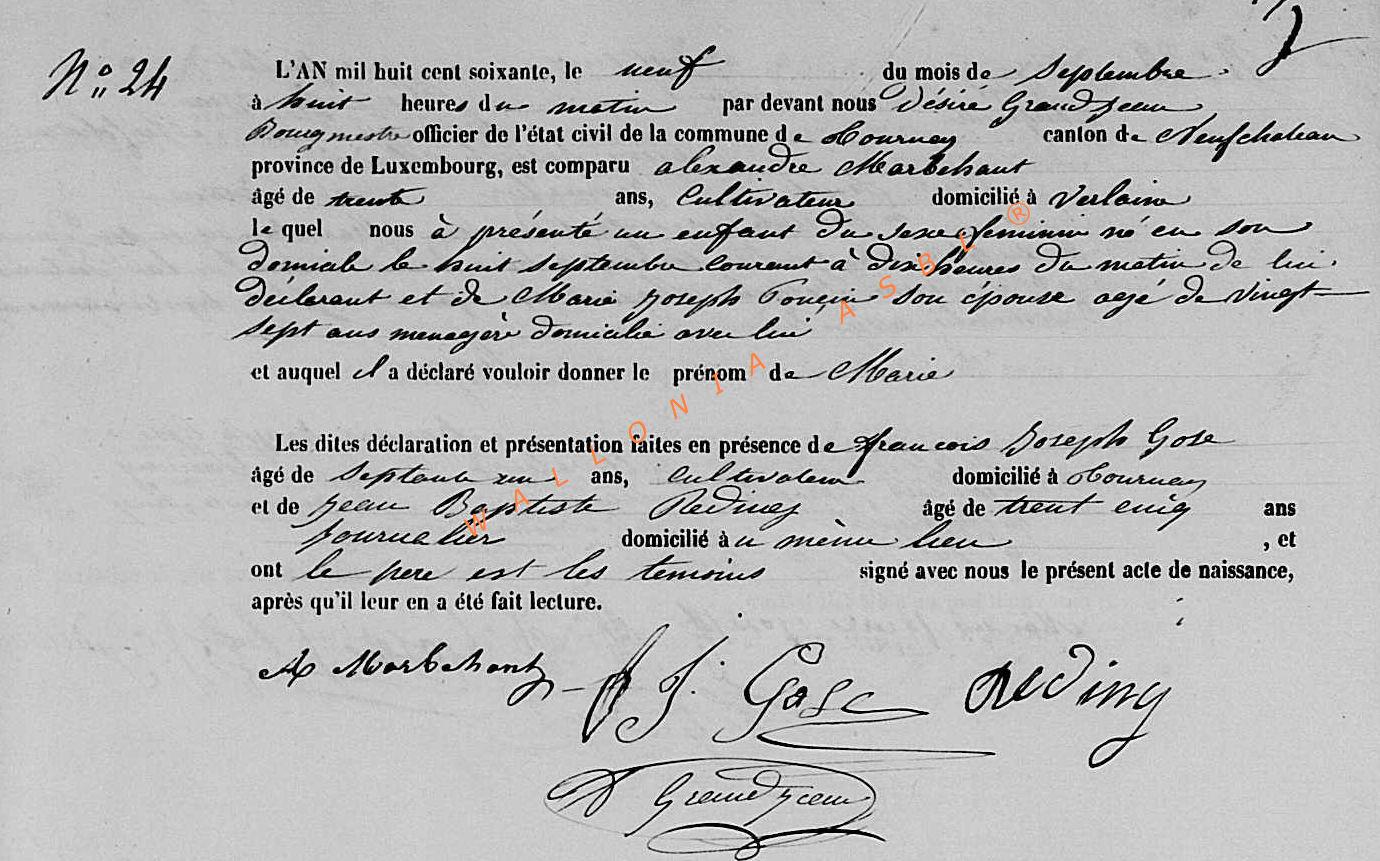 N° 24
L'AN mil huit cent soixante, le neuf du mois de Septembre.
à huit heures du matin par devant nous Désiré Grandjean
Bourgmestre officier de l'état civil de la commune de Tournay canton de Neufchateau
province de Luxembourg, est comparu alexandre Marbehant
âgé de trente ans, Cultivateur domicilié à Verlaine
le quel nous à présenté un enfant du sexe feminin né en son
domicile le huit septembre courant à dix heures du matin de lui
déclarant et de Marie Joseph Poncin son épouse agé de vingt-
sept ans menagère domicilié avec lui
et auquel il a déclaré vouloir donner le prénom de Marie
Les dites déclaration et présentation faites en présence de francois Joseph Gose
âgé de septante un ans, Cultivateur domicilié à Tournay
et de jean Baptiste Reding âgé de trent cinq ans
journalier domicilié à u même lieu , et
ont le pere est les temoins signé avec nous le présent acte de naissance,
après qu'il leur en a été fait lecture.
A Marbehant F J. Gose Reding
D Grandjean
WALLONIA ASBL ®